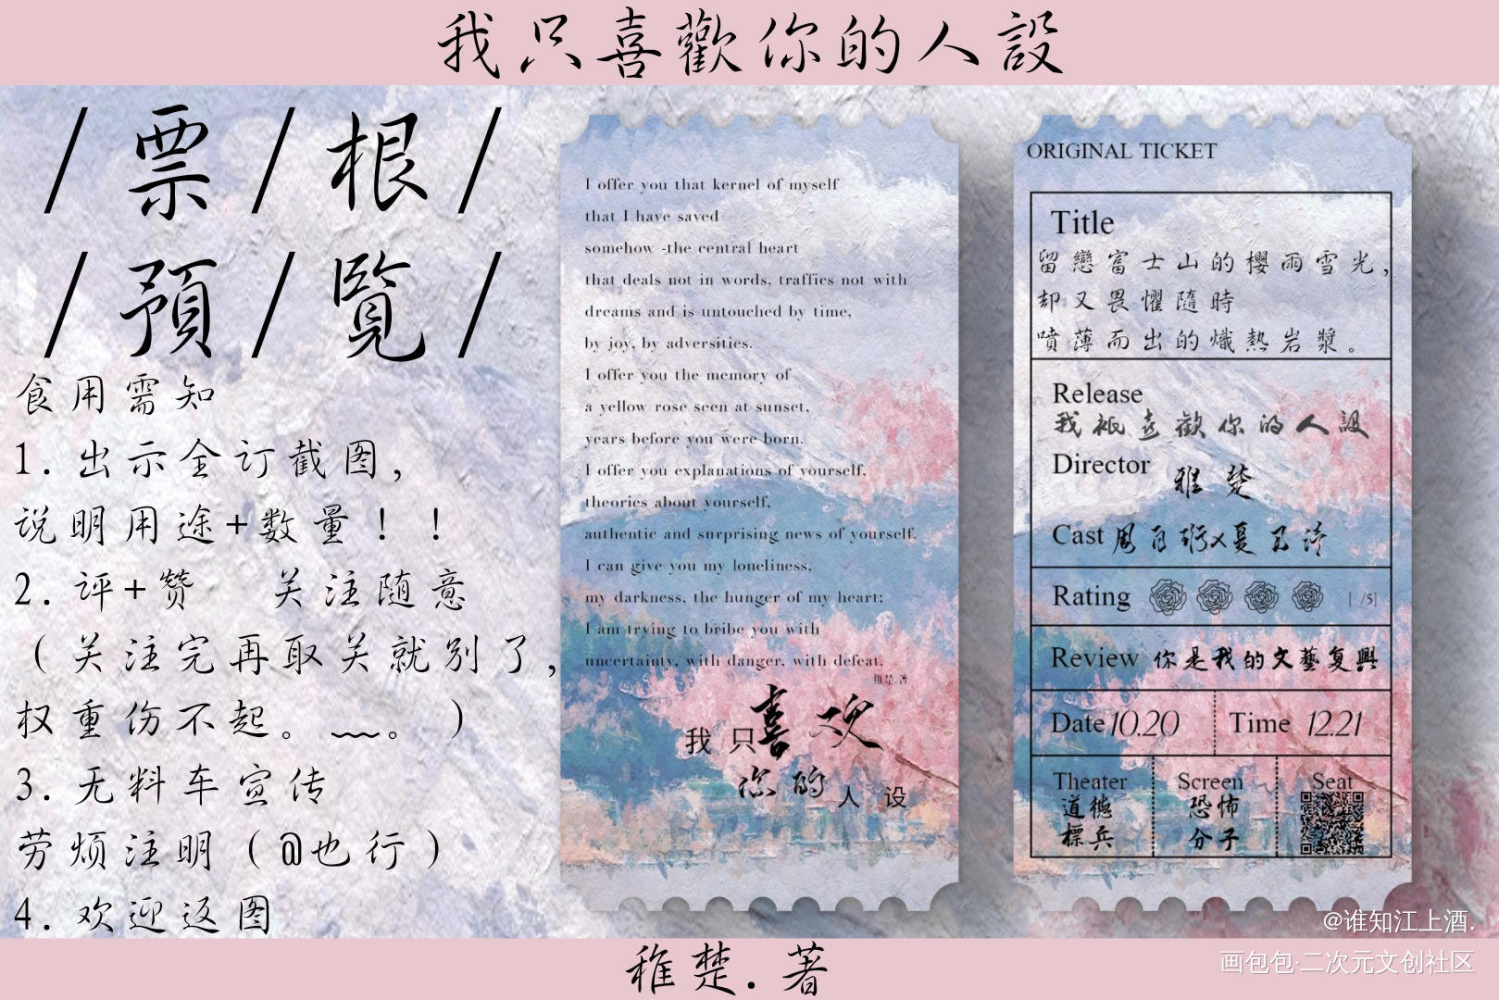 我只喜歡你的人設
/票/根/
/預/覽/
食用需知
1. 出示全订截图，
说明用途+数量！！
2. 评+赞 关注随意
（关注完再取关就别了，
权重伤不起。﹏。）
3. 无料车宣传
劳烦注明（@也行）
4. 欢迎返图
I offer you that kernel of myself
that I have saved
somehow -the central heart
that deals not in words, traffics not with
dreams and is untouched by time,
by joy, by adversities.
I offer you the memory of
a yellow rose seen at sunset,
years before you were born.
I offer you explanations of yourself,
theories about yourself,
authentic and surprising news of yourself.
I can give you my loneliness,
my darkness, the hunger of my heart;
I am trying to bribe you with
uncertainty, with danger, with defeat.
稚楚.著
我只喜欢
你的人设
ORIGINAL TICKET
Title
留戀富士山的櫻雨雪光，
却又畏懼隨時
噴薄而出的熾熱岩漿。
Release
我衹喜歡你的人設
Director 稚楚
Cast 周自珩×夏习清
Rating [ /5]
Review 你是我的文藝复興
Date 10.20 Time 12.21
Theater Screen Seat
道德 恐怖
標兵 分子
@谁知江上酒.
稚楚.著
画包包·二次元文创社区